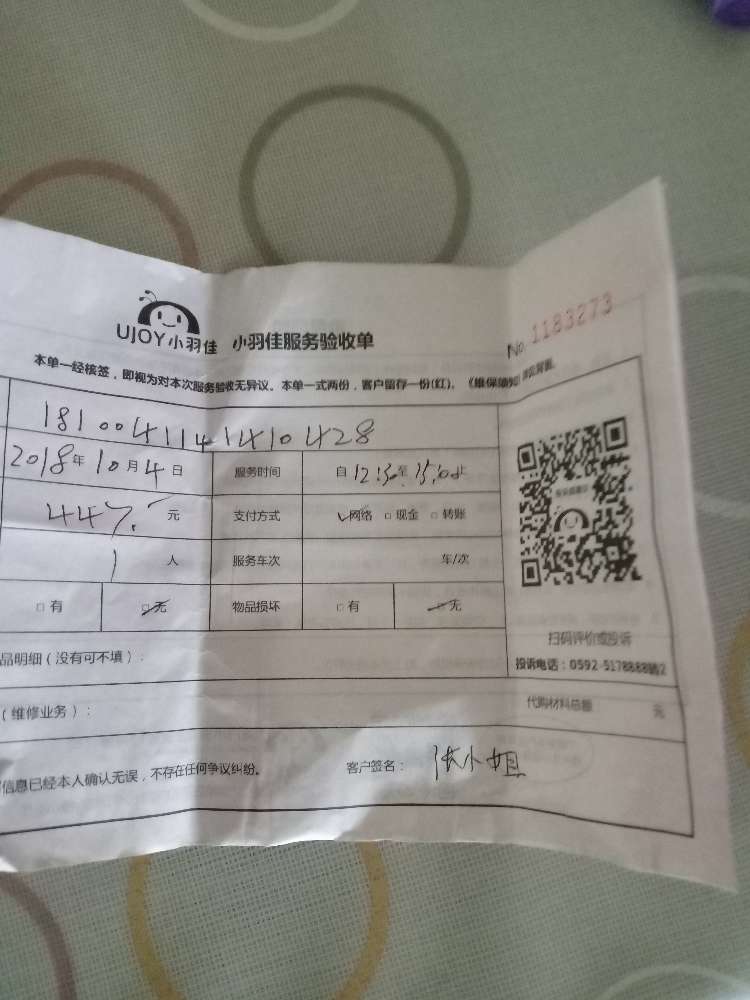 UJOY小羽佳 小羽佳服务验收单
No. 1183273
本单一经核签，即视为对本次服务验收无异议。本单一式两份，客户留存一份(红)。《维保须知》
181004114140428
2018年10月4日 服务时间 自12:30至15:00止
447.-元 支付方式 ✓网络 □现金 □转账
1人 服务车次 车/次
□有 □无 物品损坏 □有 □无
扫码评价或投诉
品明细（没有可不填）：
投诉电话：0592-5178888转2
（维修业务）： 代购材料总额 元
信息已经本人确认无误，不存在任何争议纠纷。 客户签名： 张小姐